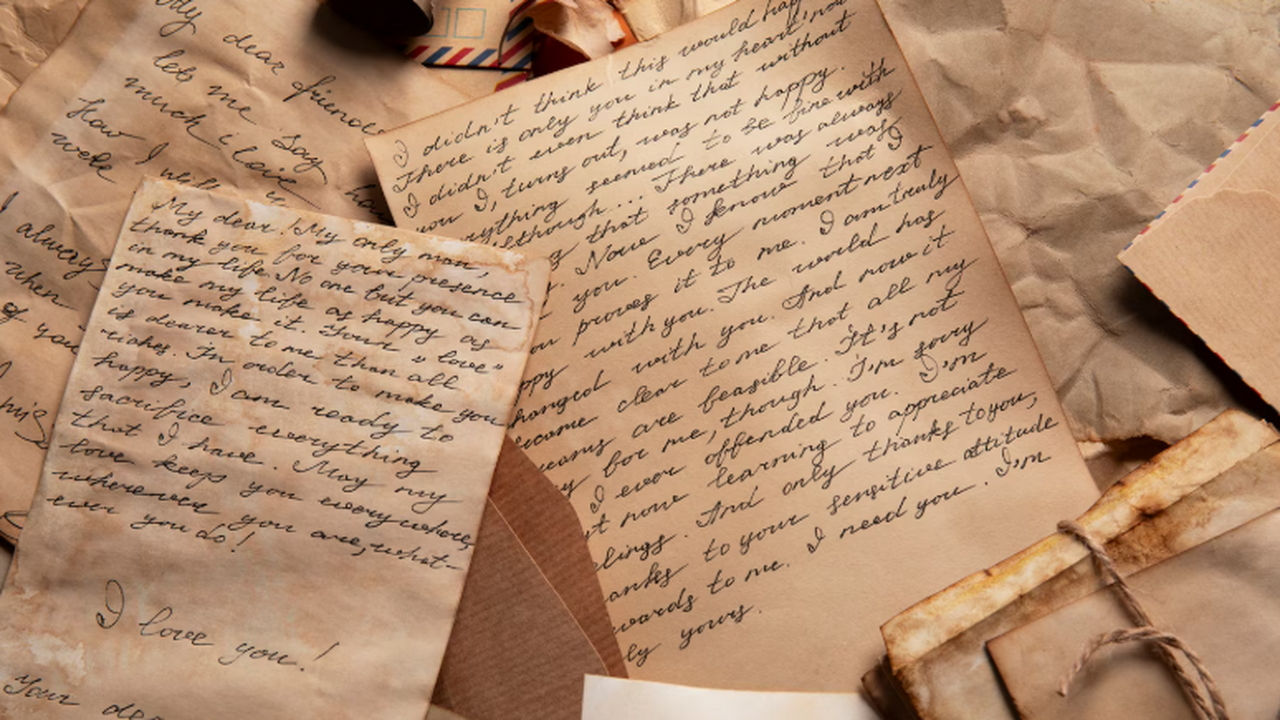 My dear friend
let me say how
much i love
How I
week
always
when
of you
My dear! My only man,
thank you for your presence
in my life. No one but you can
make my life as happy as
you make it. Your "love"
is dearer to me than all
riches. In order to make you
happy, I am ready to
sacrifice everything
that I have. May my
love keeps you everywhere,
wherever you are, what-
ever you do!
I love you!
Your
I didn't think this would
There is only you in my heart now
I didn't even think that without
you I, turns out, was not happy.
seemed to be fine with
although... There was always
that something was
. Now I know that I
you. Every moment next
you proves it to me. I am truly
with you. The world has
changed with you. And now it
become clear to me that all my
are feasible. It's not
for me, though. I'm sorry
I ever offended you. I'm
now learning to appreciate
. And only thanks to you,
to your sensitive attitude
to me. I need you. I'm
yours.